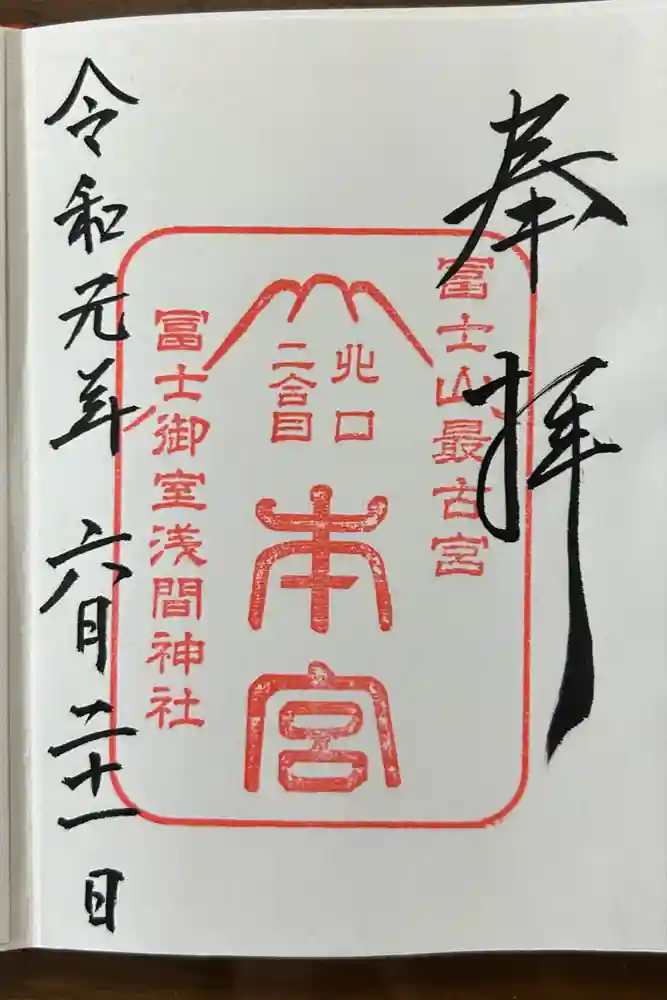 奉拝
富士山最古宮
北口
二合目
本宮
冨士御室浅間神社
令和元年 六月二十一日